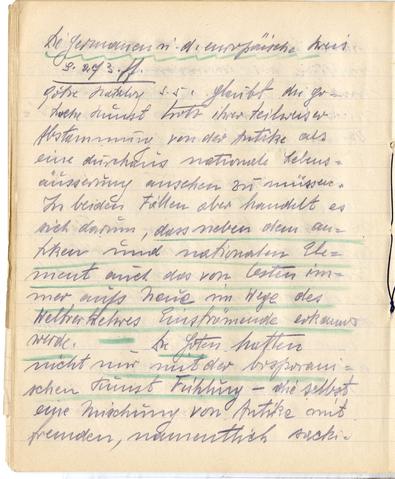 Die Germanen i. d. europäische Kreis
S. 293 ff.
Götze glaubt die go-
tische Kunst trotz ihrer teilweisen
Abstammung von der Antike als
eine durchaus nationale Lebens=
äusserung ansehen zu müssen.
In beiden Fällen aber handelt es
sich darum, dass neben dem an-
tiken und nationalen Ele-
ment auch das von Osten im-
mer aufs Neue im Wege des
Weltverkehres Einströmende erkannt
werde. — Die Goten hatten
nicht nur mit der bosporani-
schen Kunst Fühlung – die selbst
eine Mischung von Antike mit
fremden, namentlich